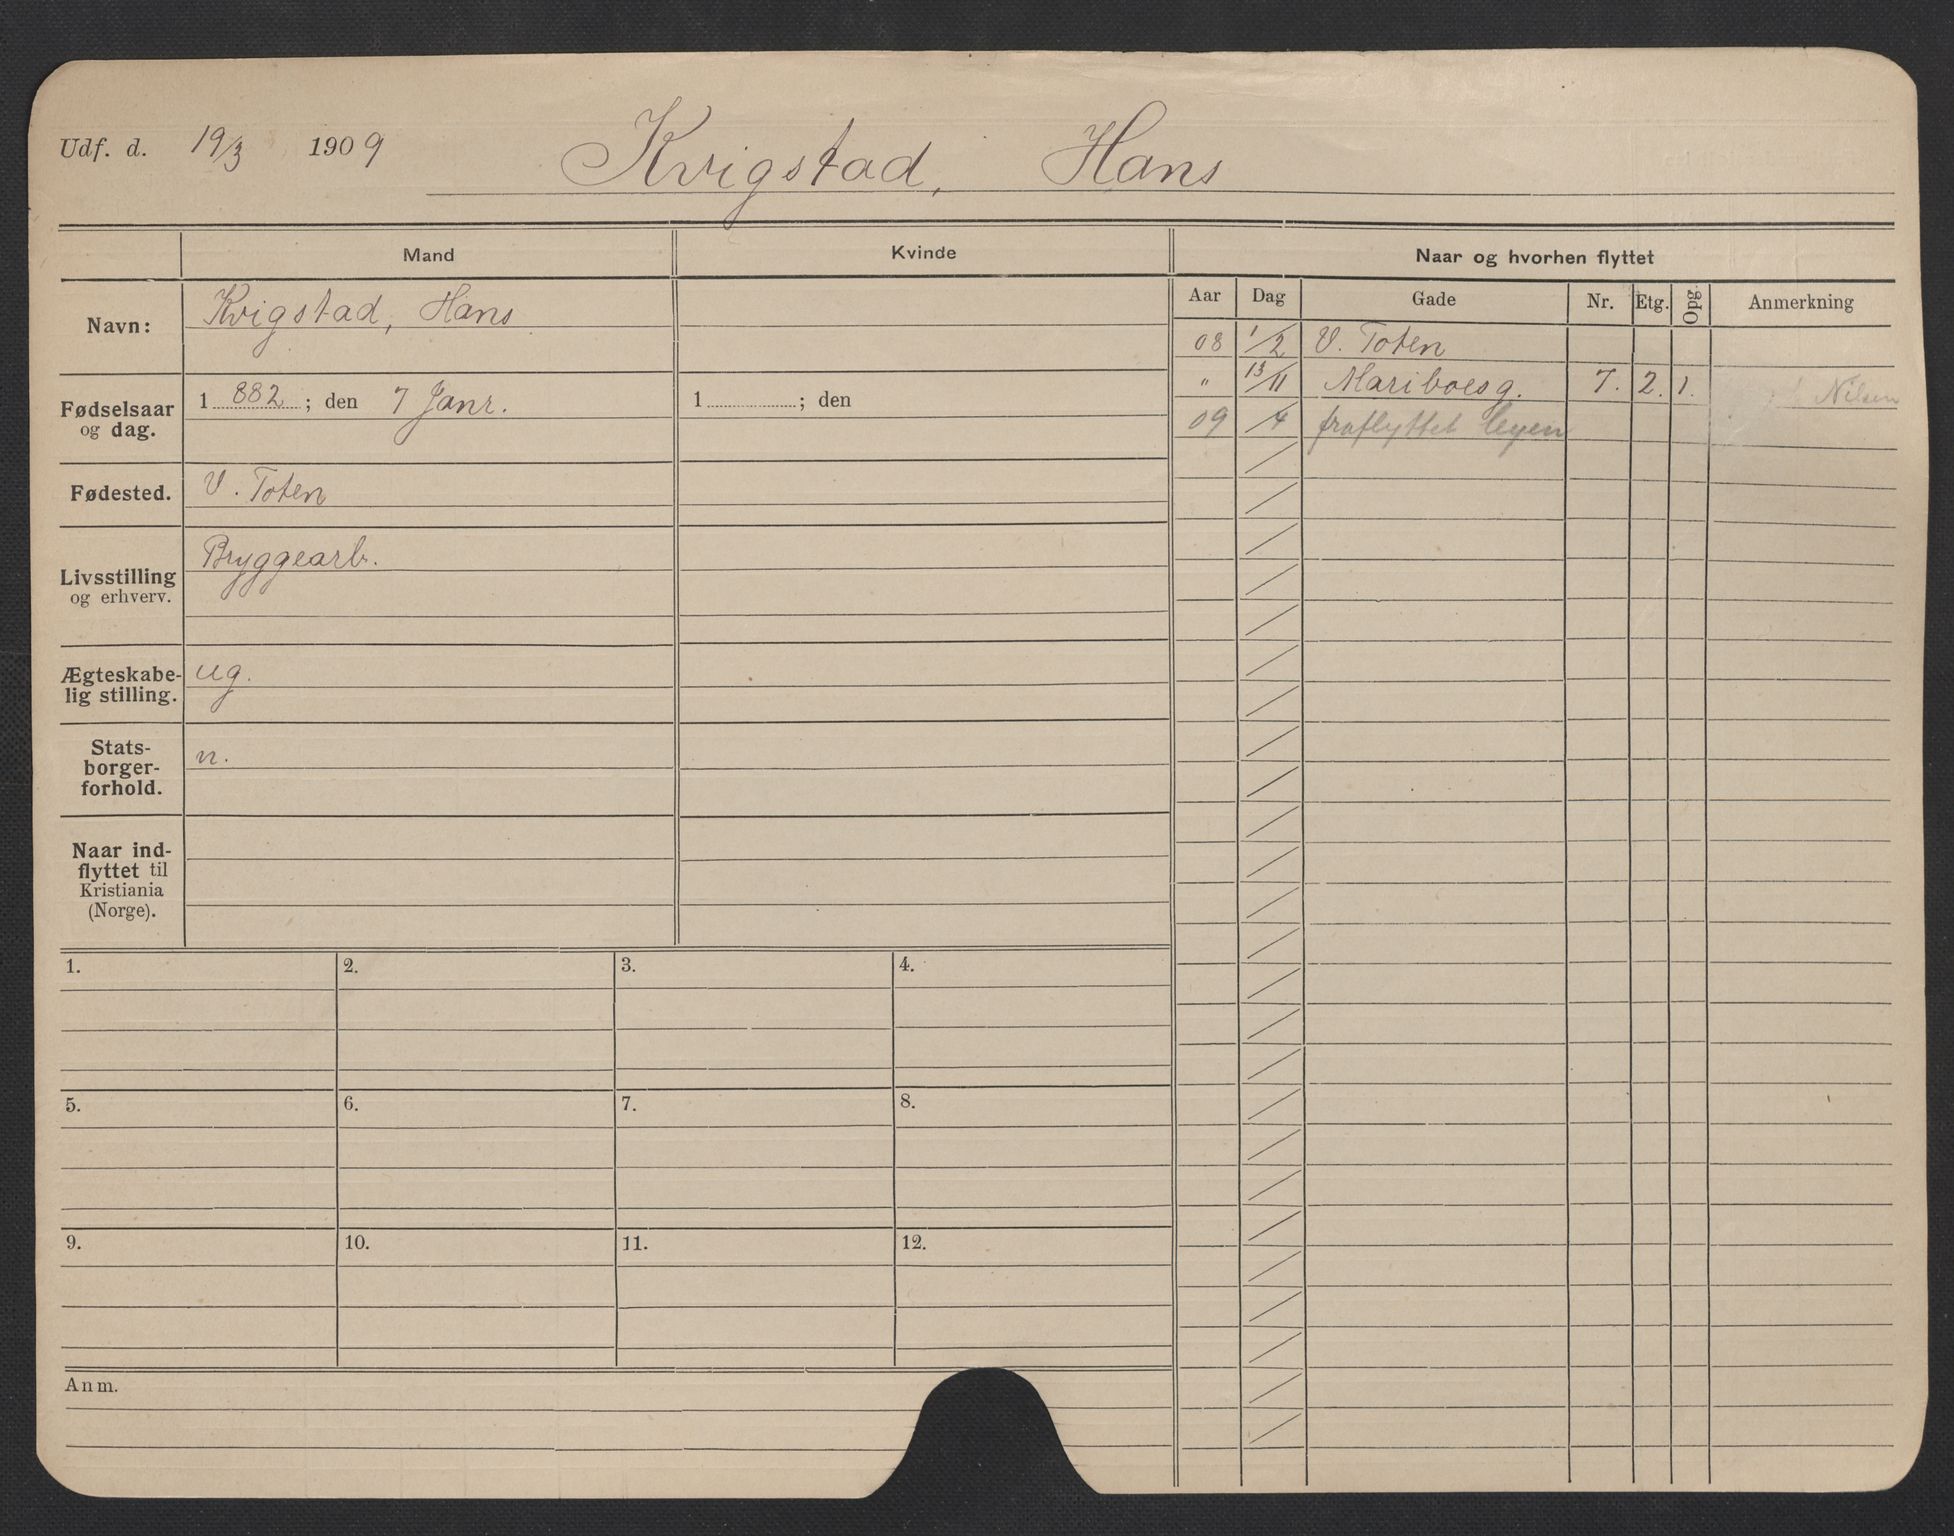 Udf. d. 19/3 1909 Kvigstad, Hans
Mand Kvinde Naar og hvorhen flyttet
Aar Dag Gade Nr. Etg. Opg. Anmerkning
Navn: Kvigstad, Hans
08 1/2 V. Toten
" 13/11 Mariboesg. 7. 2. 1. Nilsen
09 /4 fraflyttet byen
Fødselsaar
og dag.
1 882 ; den 7 Janr.
1 ; den
Fødested. V. Toten
Livsstilling
og erhverv.
Bryggearb.
Ægteskabe-
lig stilling.
ug.
Stats-
borger-
forhold.
n.
Naar ind-
flyttet til
Kristiania
(Norge).
1. 2. 3. 4.
5. 6. 7. 8.
9. 10. 11. 12.
Anm.